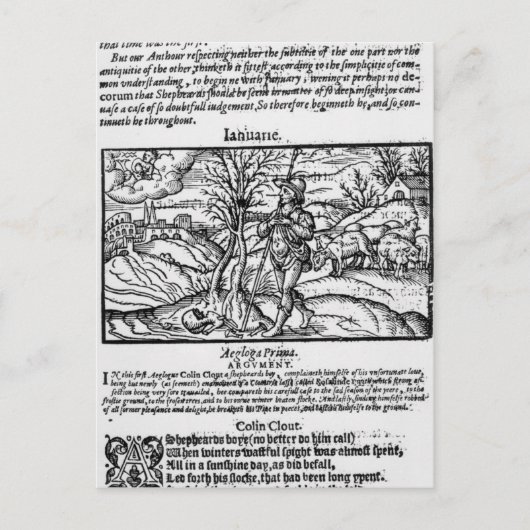 that time was the first.
But our Authour respecting neither the subtiltie of the one part nor the
antiquitie of the other, thinketh it fittest according to the simplicitie of com-
mon vnderstanding, to begin ne with Ianuary, wening it perhaps no de-
corum that Shepheards should be seene in matter of so deep insight, or can-
uase a case of so doubtfull judgement, So therefore beginneth he, and so con-
tinueth he throughout.
Ianuarie.
Aegloga Prima.
ARGVMENT.
IN this first Aeglogue Colin Clout a shepheards boy, complaineth himselfe of his vnfortunate loue,
being but newly (as seemeth) enamoured of a Countrie lasse called Rosalinde: with which strong af-
fection being very sore trauelled, hee compareth his carefull case to the sad season of the yeere, to the
frostie ground, to the frosen trees, and to his owne winter beaten flocke. And lastly, finding himselfe robbed
of all former pleasance and delight, he breaketh his Pipe in peeces, and casteth himselfe to the ground.
Colin Clout.
A Shepheards boye (no better do him call)
When winters wastful spight was almost spent,
All in a sunshine day, as did befall,
Led forth his flocke, that had been long ypent.